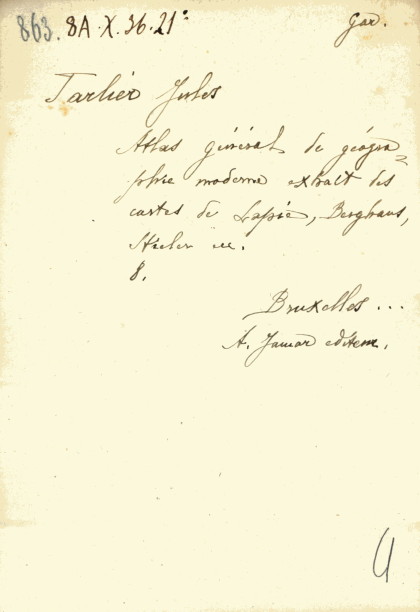 863. 8A.X.36.21.
Gar.
Tarlier Jules
Atlas général de géogra=
phie moderne extrait des
cartes de Lapie, Berghaus,
Stieler
8.
Bruxelles ...
A. Jamar editeur.